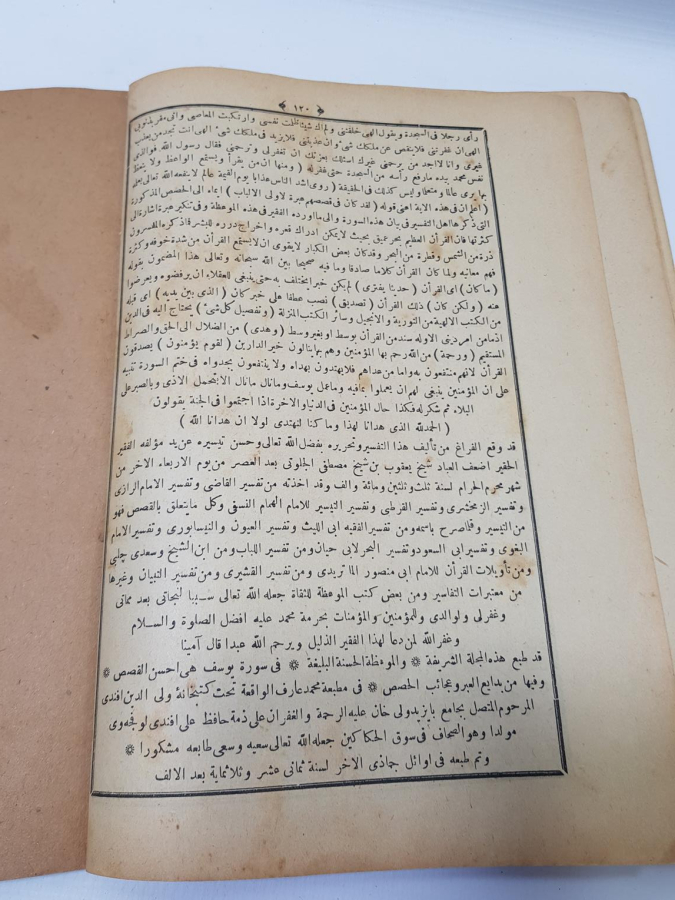 ﴿ ١٢٠ ﴾
رأى رجلا فى السجدة ويقول الهى خلقتنى ولم اك شيئا ظلمت نفسى وارتكبت المعاصى وانى مقر بذنوبى
الهى ان غفرتنى فلا ينقص عن ملكك شئ وان عذبتنى فلا يزيد فى ملكك شئ الهى انت تجد من يعذب
غيرى وانا لا اجد من يرحمنى غيرك اسئلك بعزتك ان تغفرلى وترحمنى فقال رسول الله فوالذى
نفس محمد بيده مارفع رأسه من السجدة حتى غفر له ( ومنها ان من يقرأ ويستمع الواعظ ولا يتعظ
بها يرى عالما ومتعلما وليس كذلك فى الحقيقة ( روى اشد الناس عذابا يوم القيمة عالم لا ينفعه الله تعالى بعلمه
( اعلم ان فى هذه الاية اعنى قوله ( لقد كان فى قصصهم عبرة لاولى الالباب ) ايماء الى الحصص المذكورة
التى ذكرها اهل التفسير فى بيان هذه السورة والى ما اورده الفقير فى هذه الموعظة وفى تنكير عبرة اشارة الى
كثرتها فان القرأن العظيم بحر عميق بحيث لا يمكن ادراك قعره واخراج درره للبشر فاذكره المفسرون
ذرة من الشمس وقطرة من البحر وقد كان بعض الكبار لا يقوى ان لا يستمع القرأن من شدة خوفه وكثرة
فهم معانيه ولما كان القرأن كلاما صادقا وما فيه صحيحا بين الله سبحانه وتعالى هذا المضمون بقوله
( ما كان ) اى القرأن ( حديثا يفترى ) لم يكن خبرا يختلف به حتى ينبغى للعقلاء ان يرفضوه ويعرضوا
عنه ( ولكن كان ) ذلك القرأن ( تصديق ) نصب عطفا على خبر كان ( الذى بين يديه ) اى قبله
من الكتب الالهية من التورية والانجيل وسائر الكتب المنزلة ( وتفصيل كل شئ ) يحتاج اليه فى الدين
اذ ما من امر دينى الاوله سند من القرأن بوسط او بغير وسط ( وهدى ) من الضلال الى الحق والصراط
المستقيم ( ورحمة ) من الله رحم بها المؤمنين وهم بها ينالون خير الدارين ( لقوم يؤمنون ) يصدقون
القرأن لانهم منتفعون به واما من عداهم فلا يهتدون بهداه ولا ينتفعون بجدواه فى ختم السورة تنبيه
على ان المؤمنين ينبغى لهم ان يعملوا بما فيه وما عمل يوسف وما نال ما نال الا بتحمل الاذى وبالصبر على
البلاء ثم شكر له فكذا حال المؤمنين فى الدنيا والاخرة اذا اجتمعوا فى الجنة يقولون
( الحمدلله الذى هدانا لهذا وما كنا لنهتدى لولا ان هدانا الله )
قد وقع الفراغ من تأليف هذا التفسير وتحريره بفضل الله تعالى وحسن تيسيره عن يد مؤلفه الفقير
الحقير اضعف العباد شيخ يعقوب بن شيخ مصطفى الجلوتى بعد العصر من يوم الاربعاء الاخر من
شهر محرم الحرام لسنة ثلث وثلثين ومائة والف وقد اخذته من تفسير القاضى وتفسير الامام الرازى
وتفسير الزمخشرى وتفسير القرطبى وتفسير التيسير للامام الهمام النسفى وكل ما يتعلق بالقصص فهو
من التيسير وقلما صرح باسمه ومن تفسير الفقيه ابى الليث وتفسير العيون والنيسابورى وتفسير الامام
البغوى وتفسير ابى السعود وتفسير البحر لابى حيان ومن تفسير اللباب ومن ابن الشيخ وسعدى چلبى
ومن تأويلات القرأن للامام ابى منصور الماتريدى ومن تفسير القشيرى ومن تفسير التبيان وغيرها
من معتبرات التفاسير ومن بعض كتب الموعظة للثقاة جعله الله تعالى سببا لنجاتى بعد مماتى
وغفرلى ولوالدى وللمؤمنين والمؤمنات بحرمة محمد عليه افضل الصلوة والسلام
وغفر الله لمن دعا لهذا الفقير الذليل ويرحم الله عبدا قال آمينا
قد طبع هذه المجلة الشريفة ❊ والموعظة الحسنة البليغة ❊ فى سورة يوسف هى احسن القصص ❊
وفيها من بدايع العبر وعجائب الحصص ❊ فى مطبعة محمد عارف الواقعة تحت كتبخانۀ ولى الدين افندى
المرحوم المتصل بجامع بايزيد ولى خان عليه الرحمة والغفران على ذمة حافظ على افندى لوفچه وى
مولدا وهو الصحاف فى سوق الحكاكين جعله الله تعالى سعيه وسعى طابعه مشكورا ❊
وتم طبعه فى اوائل جماذى الاخر لسنة ثمانى عشر وثلاثماية بعد الالف